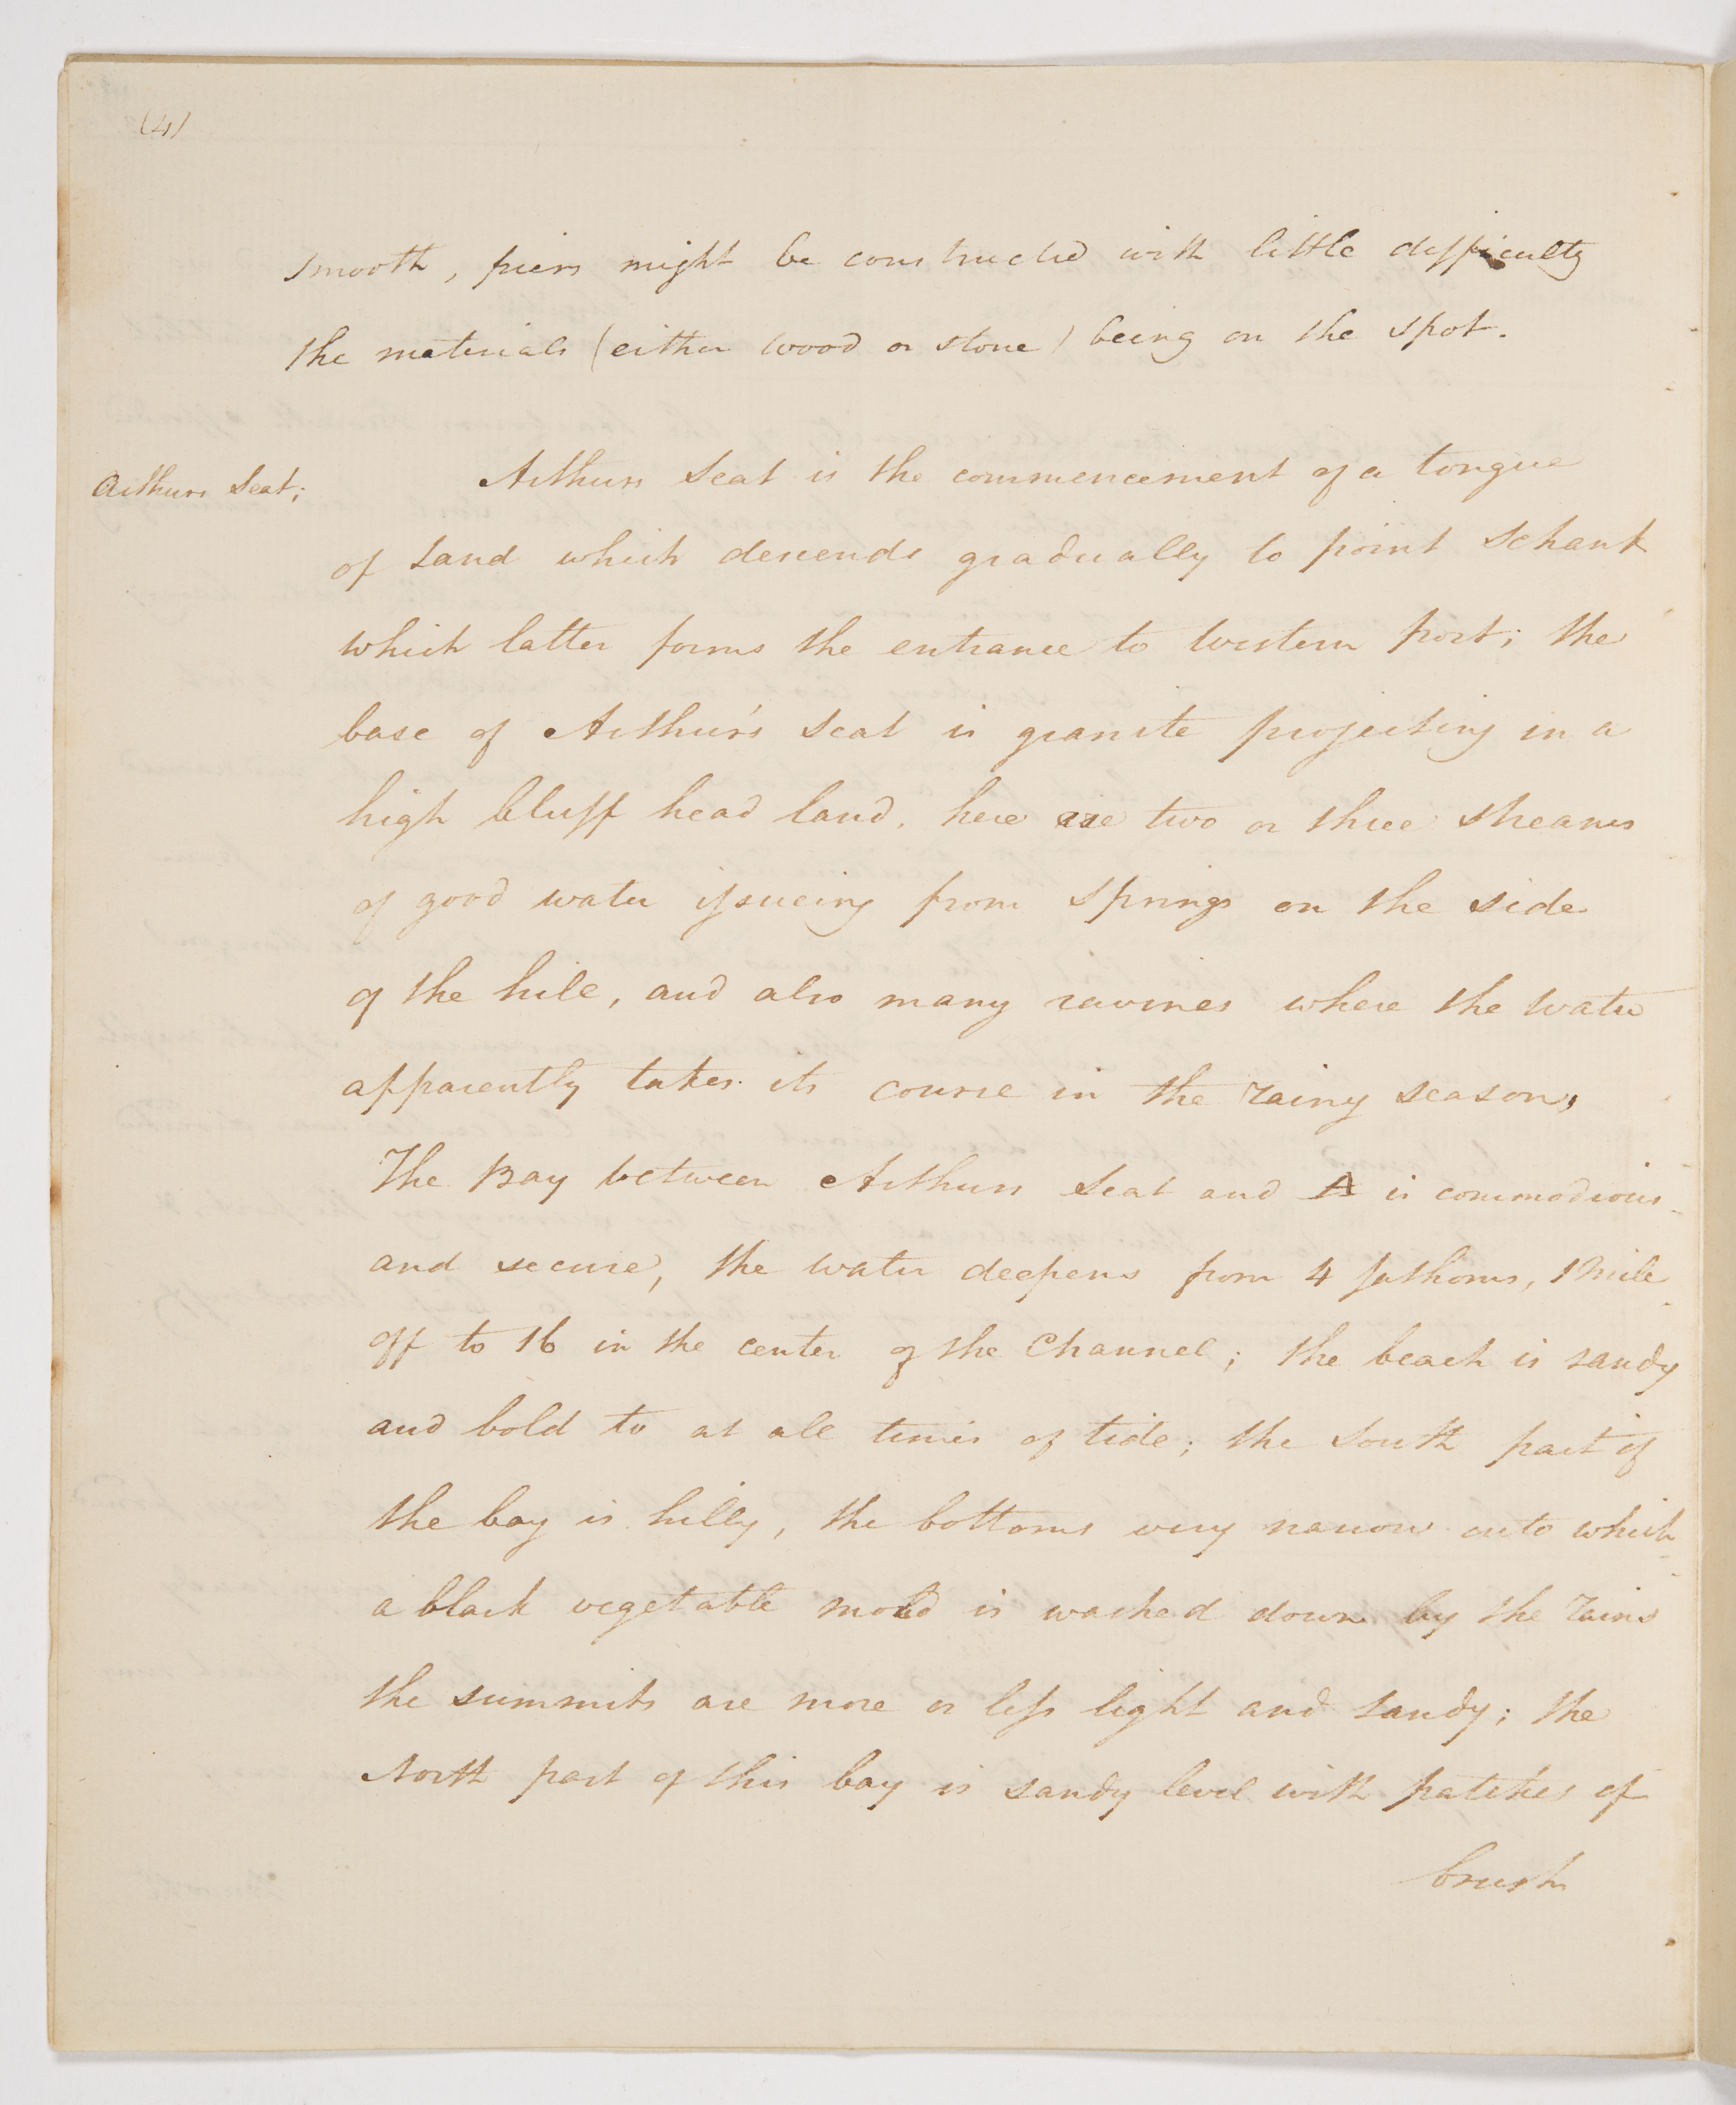 (4)
smooth, piers might be constructed with little difficulty
the materials (either wood or stone) being on the spot.
Arthurs Seat;
Arthurs Seat is the commencement of a tongue
of Land which descends gradually to point Schank
which latter forms the entrance to Western port; the
base of Arthur's Seat is granite projecting in a
high bluff head land. here are two or three streams
of good water issueing from Springs on the side
of the hill, and also many ravines where the Water
apparently takes its course in the rainy season,
The Bay between Arthurs Seat and A is commodious
and secure, the water deepens from 4 fathoms, 1 Mile
off to 16 in the center of the Channel; the beach is sandy
and bold to at all times of tide; the South part of
the bay is hilly, the bottoms very narrow onto which
a black vegetable mold is washed down by the rains
the summits are more or less light and sandy; the
North part of this bay is sandy level with patches of
brush